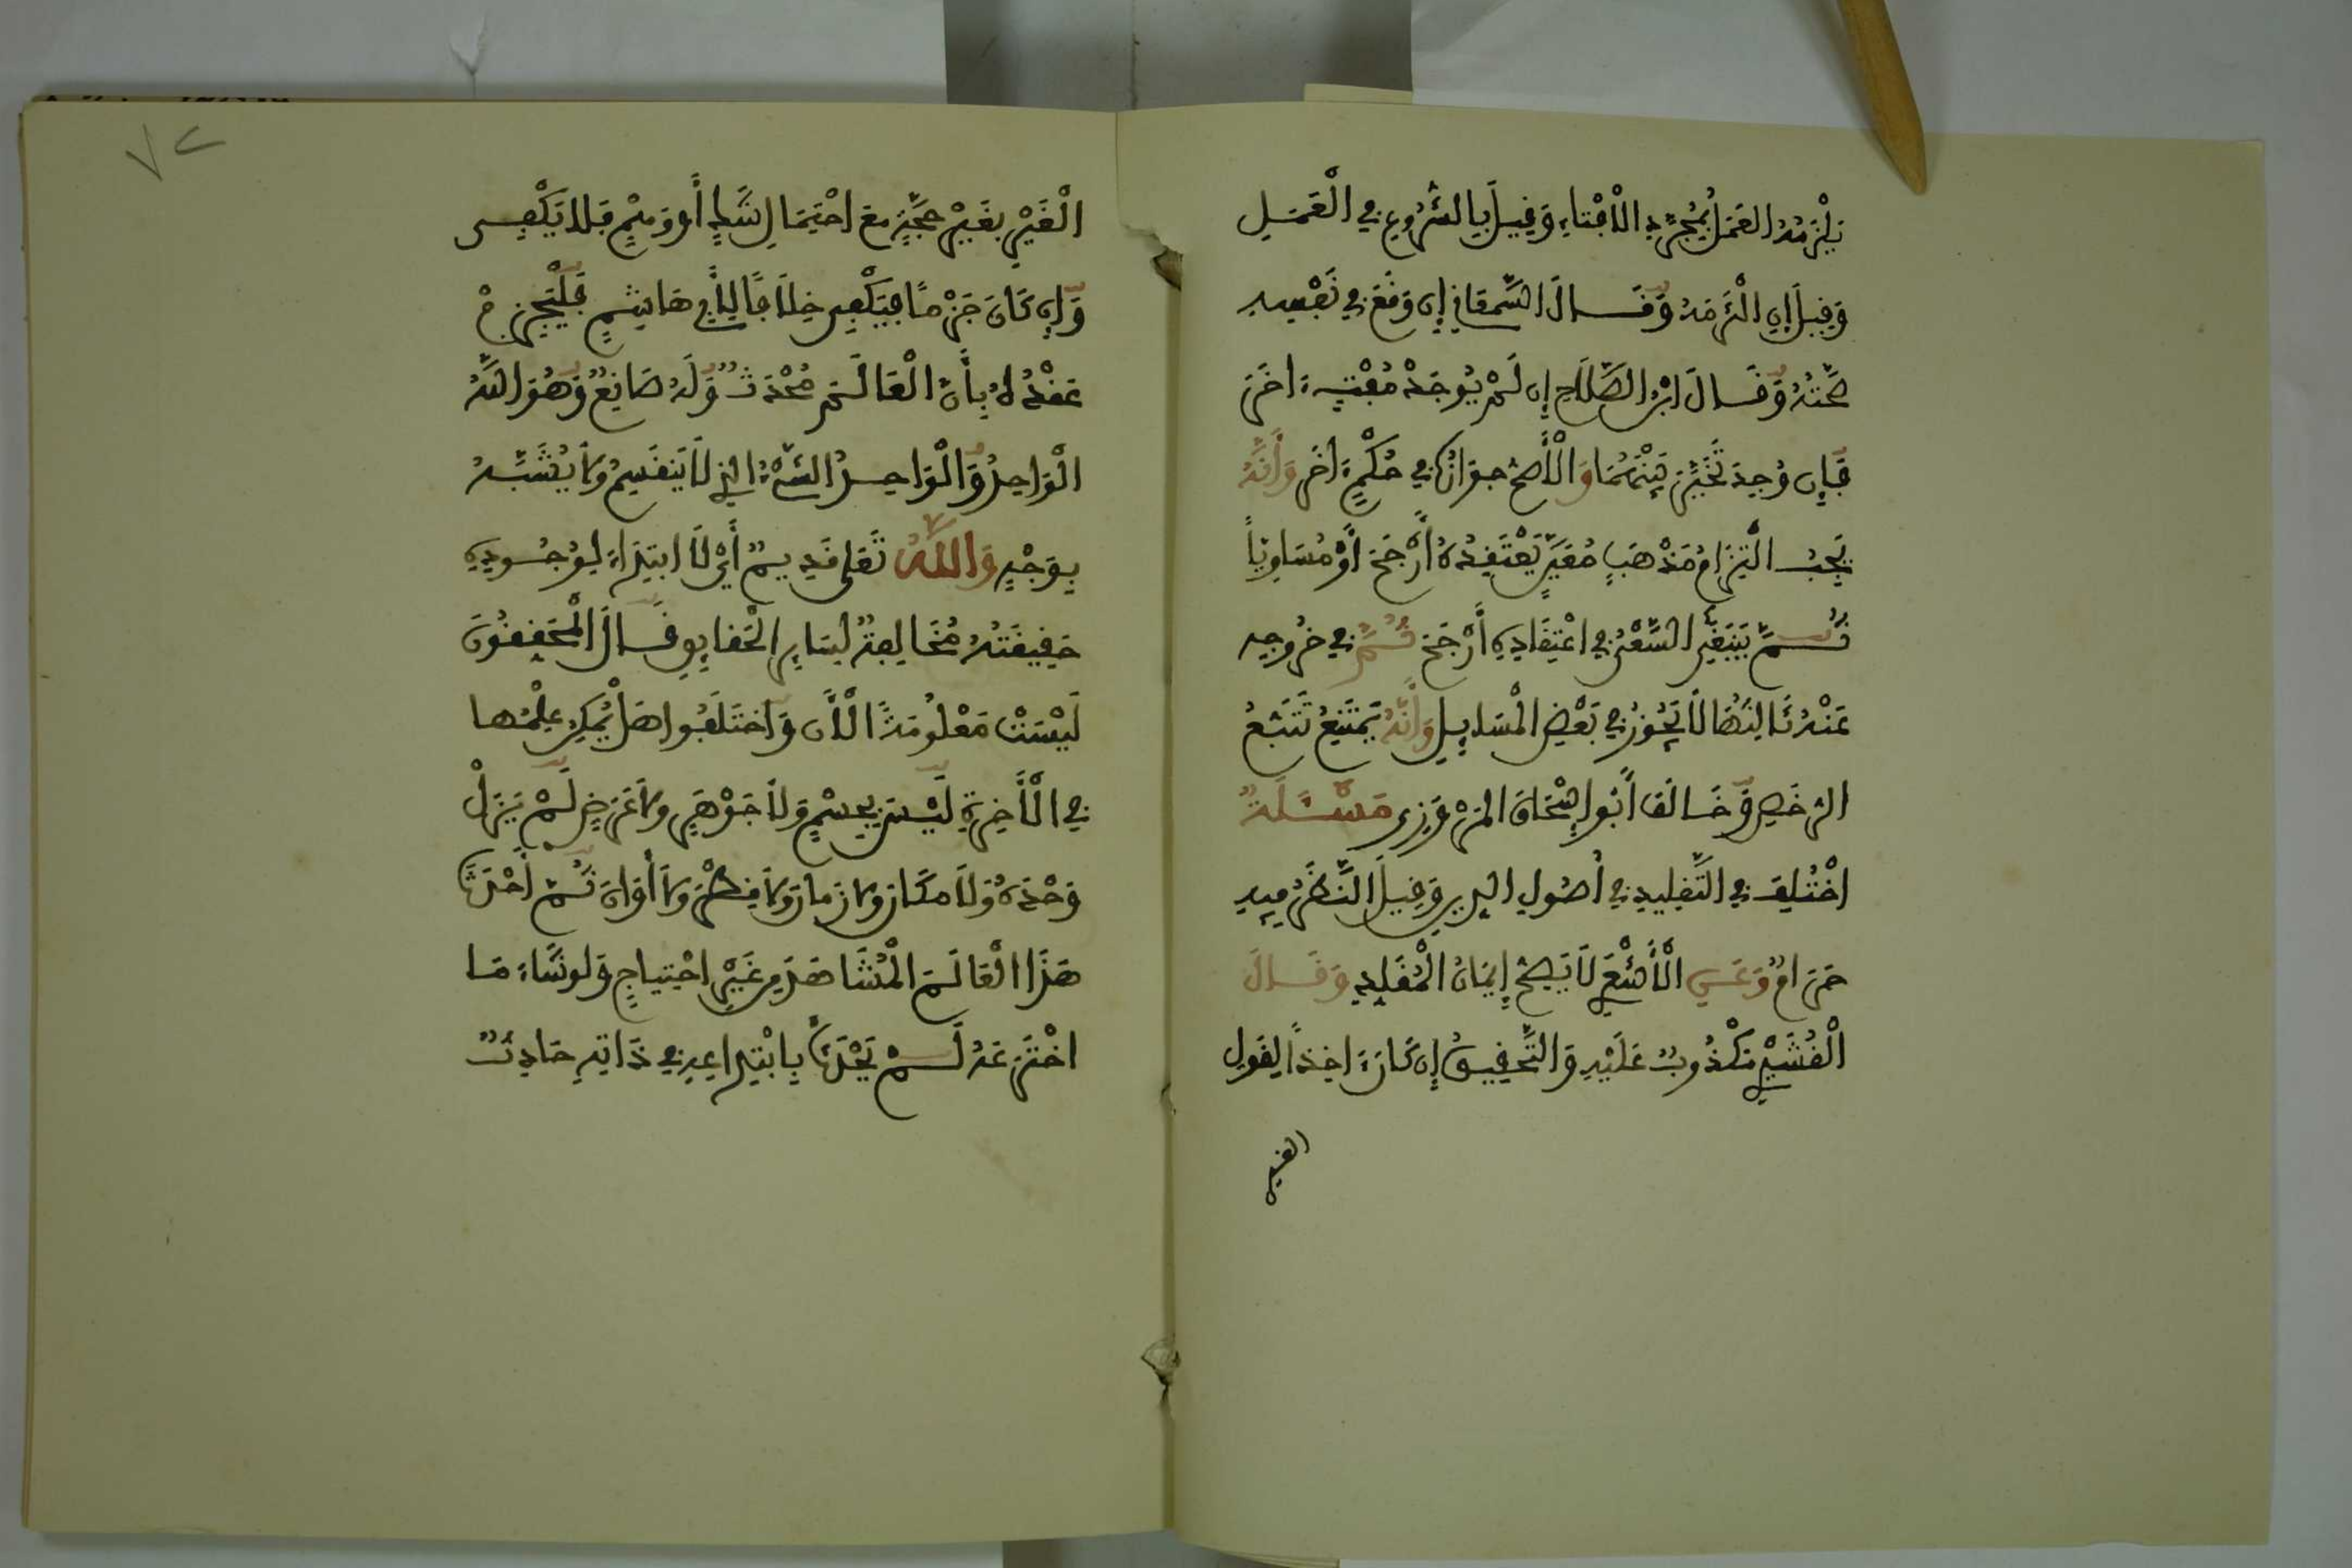 يَلْزَمُهُ العَمَلُ بِمُجَرَّدِ الْاِفْتَاءِ وَقِيلَ بِالشُّرُوعِ فِي الْعَمَلِ
وَقِيلَ إِنِ الْتَزَمَهُ وَقَالَ السَّمْعَانِي إِن وَقَعَ فِي نَفْسِهِ
صِحَّتُهُ وَقَالَ ابْنُ الصَّلَاحِ إِن لَمْ يُوجَدْ مُفْتٍ ءَاخَرَ
فَإِن وُجِدَ تَخَيَّرَ بَيْنَهُمَا وَالْأَصَحُّ جَوَازُهُ فِي حُكْمٍ ءَاخَرَ وَأَنَّهُ
يَجِبُ الْتِزَامُ مَذْهَبٍ مُعَيَّنٍ يَعْتَقِدُهُ أَرْجَحَ أَوْ مُسَاوِيًا
ثُمَّ يَنبَغِي السَّعْيُ فِي اعْتِقَادِهِ أَرْجَحَ ثُمَّ فِي خُرُوجِهِ
عَنْهُ ثَالِثُهَا لَا يَجُوزُ فِي بَعْضِ الْمَسَايِلِ وَأَنَّهُ يَمْتَنِعُ تَتَبُّعُ
الرُّخَصِ وَخَالَفَ أَبُو إِسْحَاقَ الْمَرْوَزِي مَسْئَلَةٌ
اخْتُلِفَ فِي التَّقْلِيدِ فِي أُصُولِ الدِّينِ وَقِيلَ النَّظَرُ فِيهِ
حَرَامٌ وَعَنِ الْأَشْعَرِي لَا يَصِحُّ إِيمَانُ الْمُقَلِّدِ وَقَالَ
الْقُشَيْرِي مَكْذُوبٌ عَلَيْهِ وَالتَّحْقِيقُ إِن كَانَ ءَاخِذًا لِقَوْلِ
الغير
٧٢
الْغَيْرِ بِغَيْرِ حُجَّةٍ مَعَ احْتِمَالِ شَكٍّ أَو وَهْمٍ فَلَا يَكْفِي
وَإِن كَانَ جَزْمًا فَيَكْفِي خِلَافًا لِأَبِي هَاشِمٍ فَلْيَجْزِمْ
عَقْدُهُ بِأَنَّ الْعَالَمَ مُحْدَثٌ وَلَهُ صَانِعٌ وَهُوَ اللَّهُ
الْوَاحِدُ وَالْوَاحِدُ الشَّيْءُ الذِي لَا يَنقَسِمُ وَلَا يُشَبَّهُ
بِوَجْهٍ وَاللَّهُ تَعَالَى قَدِيمٌ أَيْ لَا ابْتِدَاءَ لِوُجُودِهِ
حَقِيقَتُهُ مُخَالِفَةٌ لِسَايِرِ الْحَقَايِقِ قَالَ الْمُحَقِّقُونَ
لَيْسَتْ مَعْلُومَةً الْأَن وَاخْتَلَفُوا هَل يُمْكِنُ عِلْمُهَا
فِي الْأَخِرَةِ لَيْسَ بِجِسْمٍ وَلَا جَوْهَرٍ وَلَا عَرَضٍ لَمْ يَزَلْ
وَحْدَهُ وَلَا مَكَانَ وَلَا زَمَانَ وَلَا قُطْرَ وَلَا أَوَانَ ثُمَّ أَحْدَثَ
هَذَا الْعَالَمَ الْمُشَاهَدَ مِن غَيْرِ احْتِيَاجٍ وَلَوْ شَاءَ مَا
اخْتَرَعَهُ لَمْ يَحْدُثْ بِابْتِدَاعِهِ فِي ذَاتِهِ حَادِثٌ